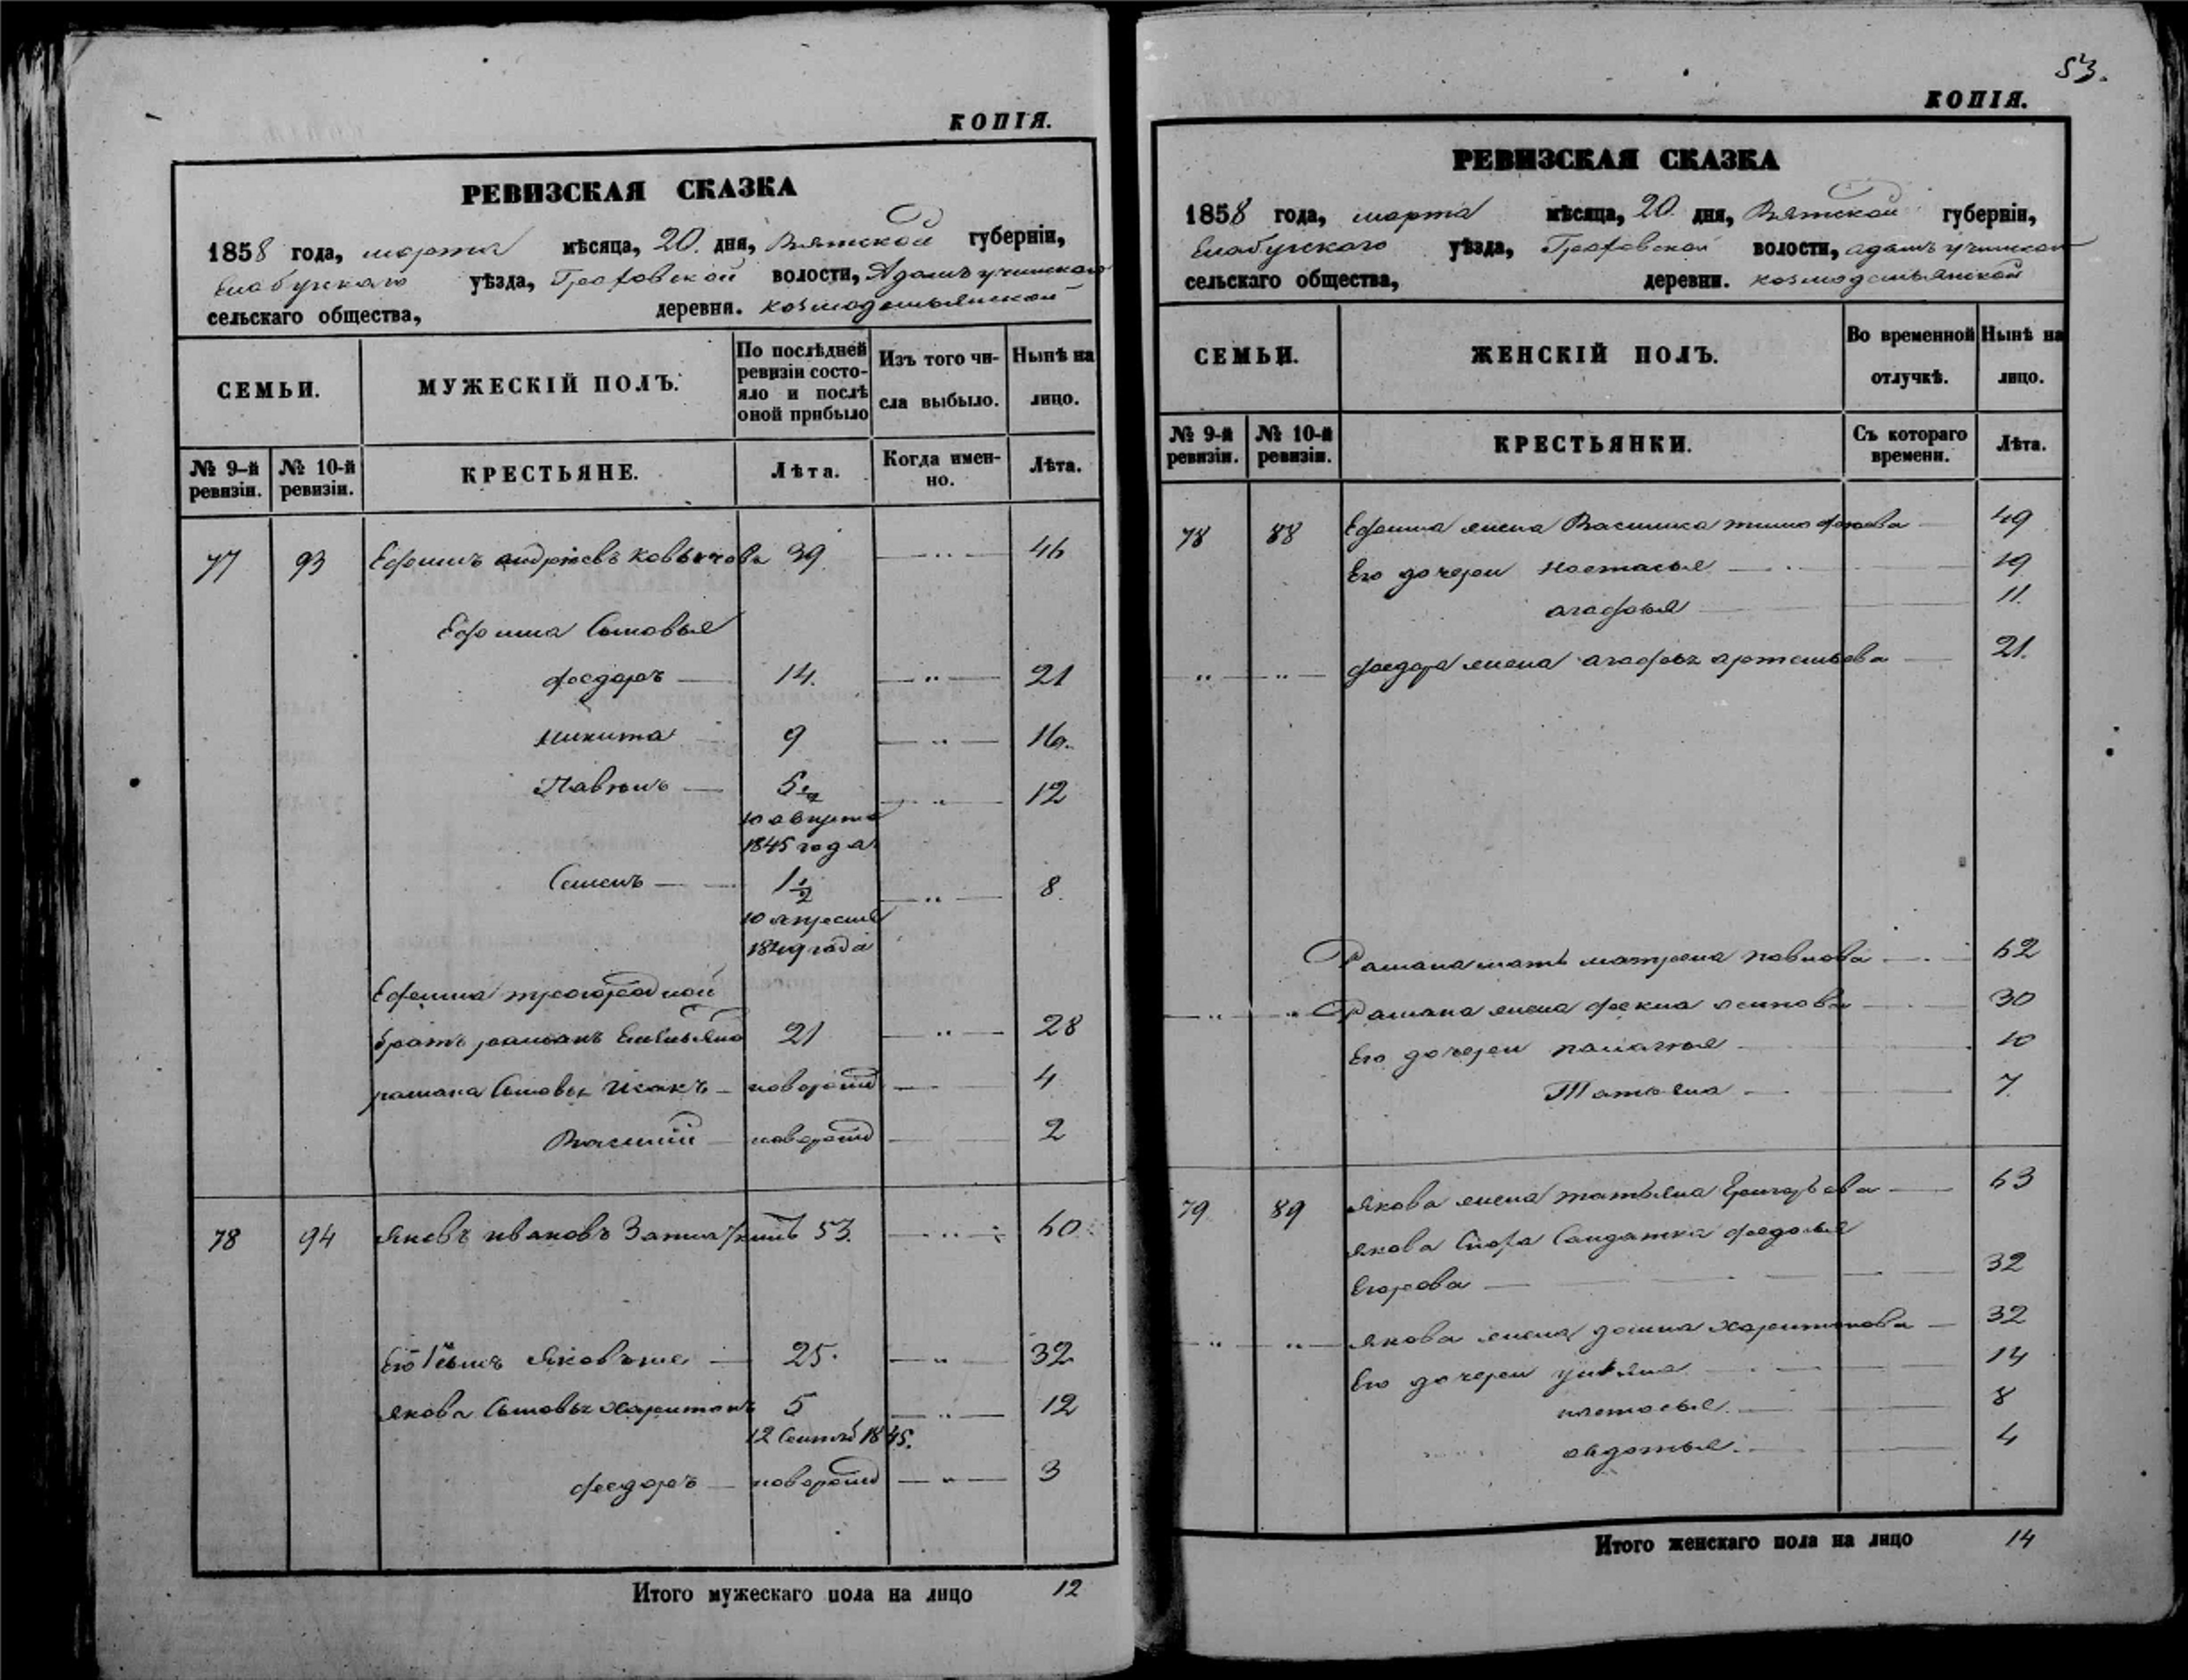 КОПІЯ.
РЕВИЗСКАЯ СКАЗКА
1858 года, марта мѣсяца, 20. дня, Вятской губерніи,
Елабужскаго уѣзда, Граховской волости, Адамъучинскаго
сельскаго общества, деревни. козмодемьянской
СЕМЬИ.
МУЖЕСКІЙ ПОЛЪ.
По послѣдней ревизіи состояло и послѣ оной прибыло
Изъ того числа выбыло.
Нынѣ на лицо.
№ 9-й ревизіи.
№ 10-й ревизіи.
КРЕСТЬЯНЕ.
Лѣта.
Когда именно.
Лѣта.
77 93 Ефимъ андрѣевъ 39 46
Ефима Сыновья
федоръ 14. 21
никита 9 16.
Павелъ 5 1/2 12
10 августа
1845 года
Семенъ 1 1/2 8
10 апреля
1849 года
Ефима троюродной
братъ романъ Емельяно 21 28
романа Сыновья Исакъ новорожд 4
Василій новорожд 2
78 94 Яковъ ивановъ 53. 60
Его Сынъ Яковъ же 25. 32
якова Сыновья харитонъ 5 12
12 Сентяб 1845.
федоръ новорожд 3
Итого мужескаго пола на лицо 12
53.
КОПІЯ.
РЕВИЗСКАЯ СКАЗКА
1858 года, марта мѣсяца, 20. дня, Вятской губерніи,
Елабужскаго уѣзда, Граховской волости, адамъучинскаго
сельскаго общества, деревни. козмодемьянской
СЕМЬИ.
ЖЕНСКІЙ ПОЛЪ.
Во временной отлучкѣ.
Нынѣ на лицо.
№ 9-й ревизіи.
№ 10-й ревизіи.
КРЕСТЬЯНКИ.
Съ котораго времени.
Лѣта.
78 88 Ефима жена Василиса тимофеева 49
Его дочери настасья 19
агафья 11.
федора жена агафья артемьева 21.
Романа мать матрена павлова 62
Романа жена фекла осипова 30
Его дочери палагея 10
Татьяна 7.
79 89 якова жена татьяна Григорьева 63
якова Сноха Салдатка федосья
Егорова 32
якова жена домна харитонова 32
Его дочери ульяна 14
настасья. 8
авдотья. 4
Итого женскаго пола на лицо 14